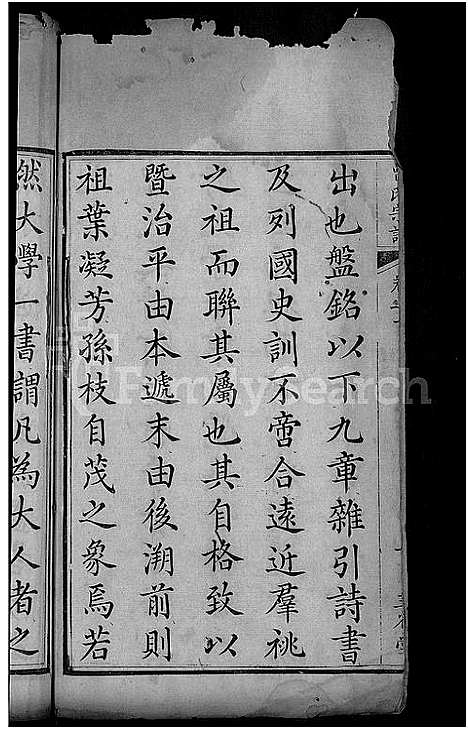 出也盤銘以下九章雜引詩書
及列國史訓不啻合遠近羣祧
之祖而聯其屬也其自格致以
暨治平由本遞末由後溯前則
祖葉凝芳孫枝自茂之象焉若
然大學一書謂凡為大人者之
FamilySearch